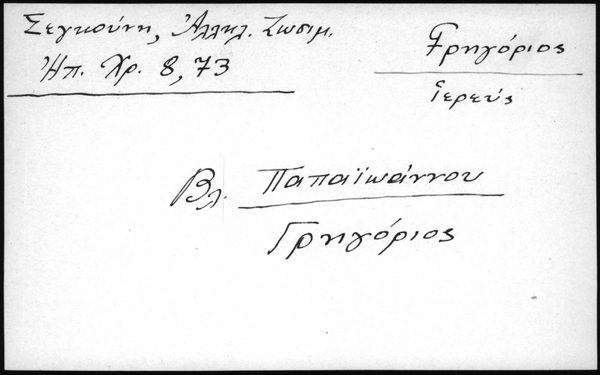 Σεγκούνη, Ἀλληλ. Ζωσιμ.
Ἠπ. Χρ. 8, 73
Γρηγόριος
ἱερεύς
Βλ. Παπαϊωάννου
Γρηγόριος